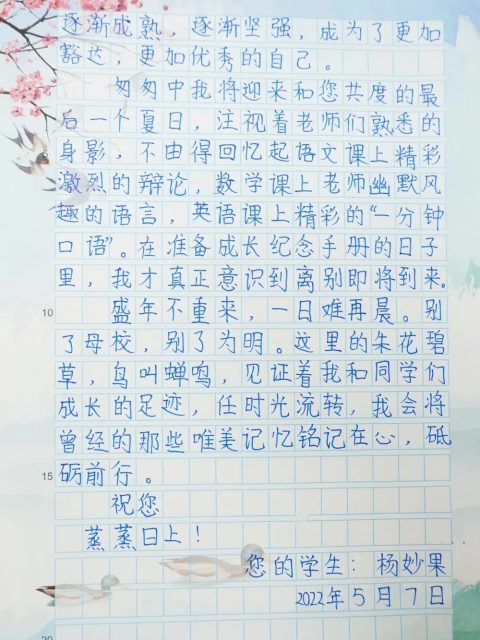 逐渐成熟，逐渐坚强，成为了更加
豁达，更加优秀的自己。
匆匆中我将迎来和您共度的最
后一个夏日，注视着老师们熟悉的
身影，不由得回忆起语文课上精彩
激烈的辩论，数学课上老师幽默风
趣的语言，英语课上精彩的“一分钟
口语”。在准备成长纪念手册的日子
里，我才真正意识到离别即将到来。
10 盛年不重来，一日难再晨。别
了母校，别了为明。这里的朱花碧
草，鸟叫蝉鸣，见证着我和同学们
成长的足迹，任时光流转，我会将
曾经的那些唯美记忆铭记在心，砥
15 砺前行。
祝您
蒸蒸日上！
您的学生：杨妙果
2022年5月7日
20